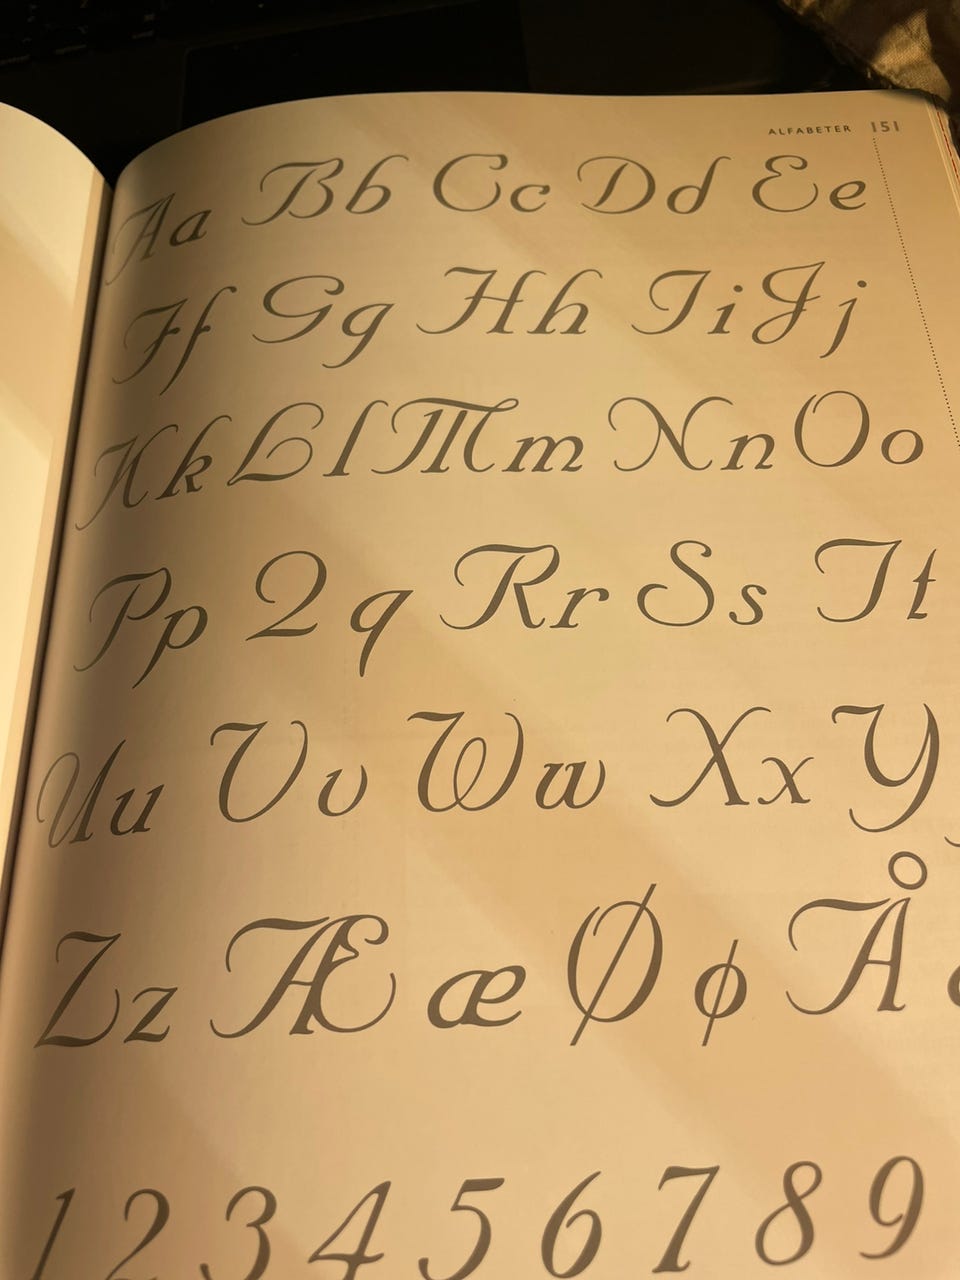 ALFABETER 151
Aa Bb Cc Dd Ee
Ff Gg Hh Ii Jj
Kk Ll Mm Nn Oo
Pp Qq Rr Ss Tt
Uu Vv Ww Xx Y
Zz Ææ Øø Å
1 2 3 4 5 6 7 8 9